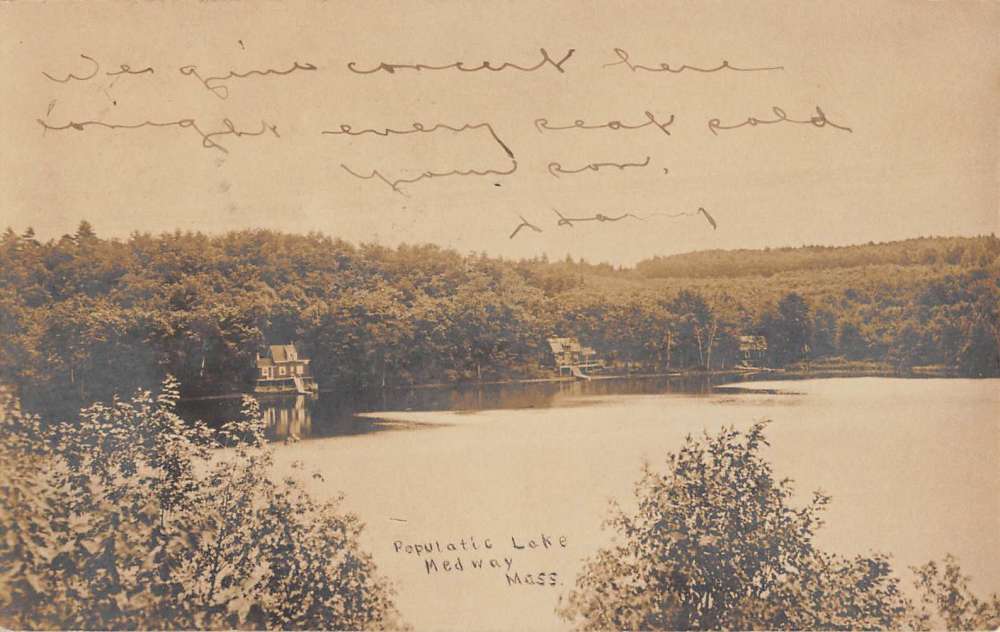 We give concert here
tonight every seat sold
your son,
Harry
Populatic Lake
Medway
Mass.